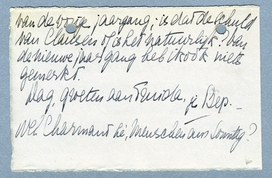 van de vorige jaargang; is dat de schuld
van Clausen of is het natuurlijk? Van
de nieuwe jaargang heb ik ook niets
gemerkt.
Dag, groeten aan je Bep. –
wel Charmant hé, Menschen am Sonntag?